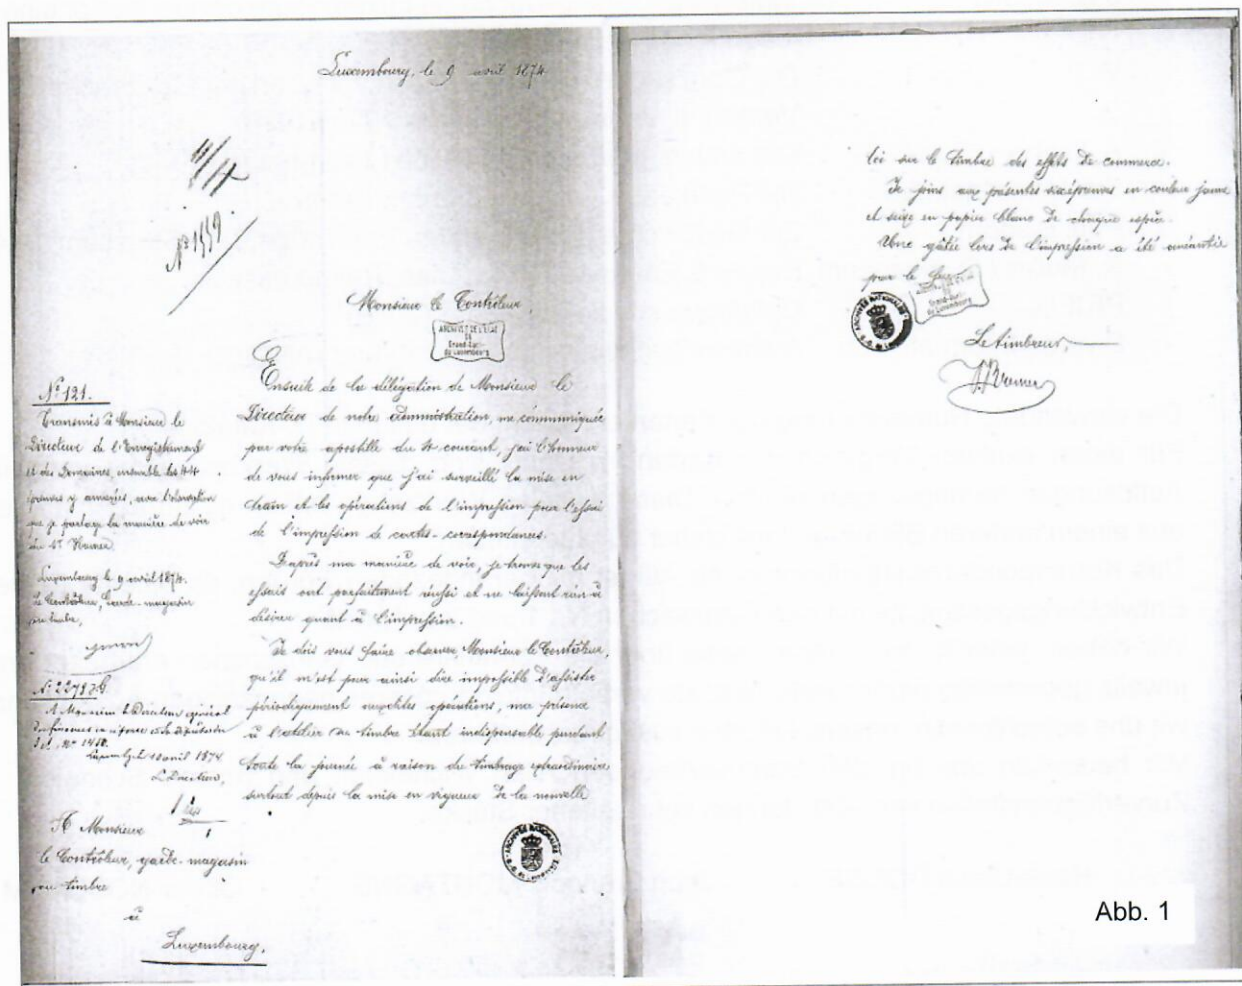 Luxembourg, le 9 avril 1874.
4/4
Nº 1559
Monsieur le Contrôleur,
ARCHIVES DE L'ETAT
DU
Grand-Duché
de Luxembourg
Ensuite de la délégation de Monsieur le
Directeur de notre administration, me communiquée
par votre apostille du 4 courant, j'ai l'honneur
de vous informer que j'ai surveillé la mise en
train et les opérations de l'impression pour l'essai
de l'impression de cartes-correspondances.
D'après ma manière de voir, je trouve que les
essais ont parfaitement réussi et ne laissent rien à
désirer quant à l'impression.
Je dois vous faire observer, Monsieur le Contrôleur,
qu'il m'est pour ainsi dire impossible d'assister
périodiquement auxdites opérations, ma présence
à l'atelier du timbre étant indispensable pendant
toute la journée à raison du timbrage extraordinaire
surtout depuis la mise en vigueur de la nouvelle
ARCHIVES NATIONALES
Nº 121.
Transmis à Monsieur le
Directeur de l'Enregistrement
et des Domaines, ensemble les 44
épreuves y annexées, avec l'observation
que je partage la manière de voir
du Sr
Luxembourg le 9 avril 1874.
Le Contrôleur, Garde-magasin
du timbre,
Nº 2278
A Monsieur le Directeur général
des finances
Nº 1410.
Luxembg. le 10 avril 1874
Le Directeur,
A Monsieur
le Contrôleur, garde-magasin
du timbre
à
Luxembourg.
loi sur le timbre des effets de commerce.
Je joins aux présentes six épreuves en couleur jaune
et seize en papier blanc de chaque espèce.
Une gâtée lors de l'impression a été anéantie
pour le
Grand-Duché
de Luxembourg
ARCHIVES NATIONALES
Le timbreur,
Abb. 1